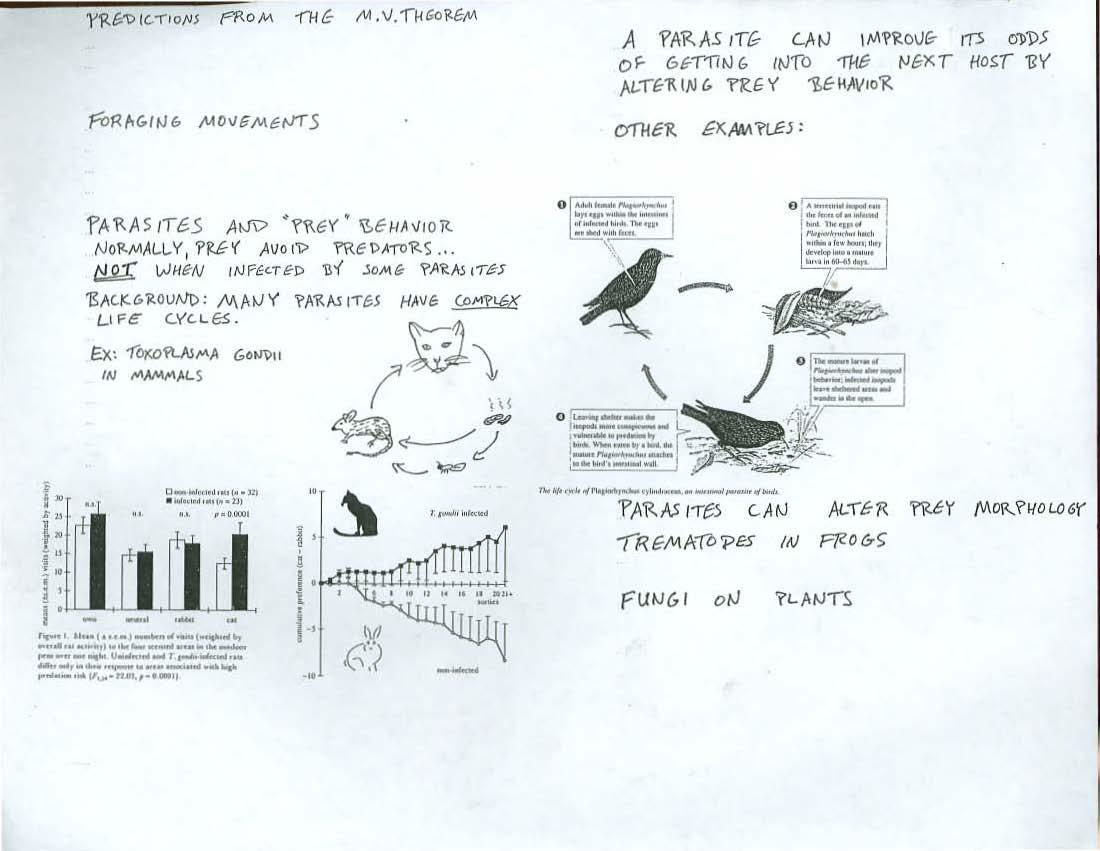 PREDICTIONS FROM THE M.V. THEOREM
FORAGING MOVEMENTS
PARASITES AND "PREY" BEHAVIOR
NORMALLY, PREY AVOID PREDATORS...
NOT WHEN INFECTED BY SOME PARASITES
BACKGROUND: MANY PARASITES HAVE COMPLEX
LIFE CYCLES.
EX: TOXOPLASMA GONDII
IN MAMMALS
means (±s.e.m.) visits (weighted by activity)
30
25
20
15
10
5
0
non-infected rats (n = 32)
infected rats (n = 23)
n.s.
n.s.
n.s.
p = 0.0001
own
neutral
rabbit
cat
Figure 1. Mean (± s.e.m.) numbers of visits (weighted by
overall rat activity) to the four scented areas in the outdoor
pens over one night. Uninfected and T. gondii-infected rats
differ only in their response to areas associated with high
predation risk
cumulative preference (cat – rabbit)
10
5
0
–5
–10
T. gondii infected
2 4 6 8 10 12 14 16 18 20 21+
sorties
non-infected
A PARASITE CAN IMPROVE ITS ODDS
OF GETTING INTO THE NEXT HOST BY
ALTERING PREY BEHAVIOR
OTHER EXAMPLES:
1 Adult female Plagiorhynchus
lays eggs within the intestines
of infected birds. The eggs
are shed with feces.
2 A terrestrial isopod eats
the feces of an infected
bird. The eggs of
Plagiorhynchus hatch
within a few hours; they
develop into a mature
larva in 60–65 days.
3 The mature larvae of
Plagiorhynchus alter isopod
behavior; infected isopods
leave sheltered areas and
wander in the open.
4 Leaving shelter makes the
isopods more conspicuous and
vulnerable to predation by
birds. When eaten by a bird, the
mature Plagiorhynchus attaches
to the bird's intestinal wall.
The life cycle of Plagiorhynchus cylindraceus, an intestinal parasite of birds.
PARASITES CAN ALTER PREY MORPHOLOGY
TREMATODES IN FROGS
FUNGI ON PLANTS